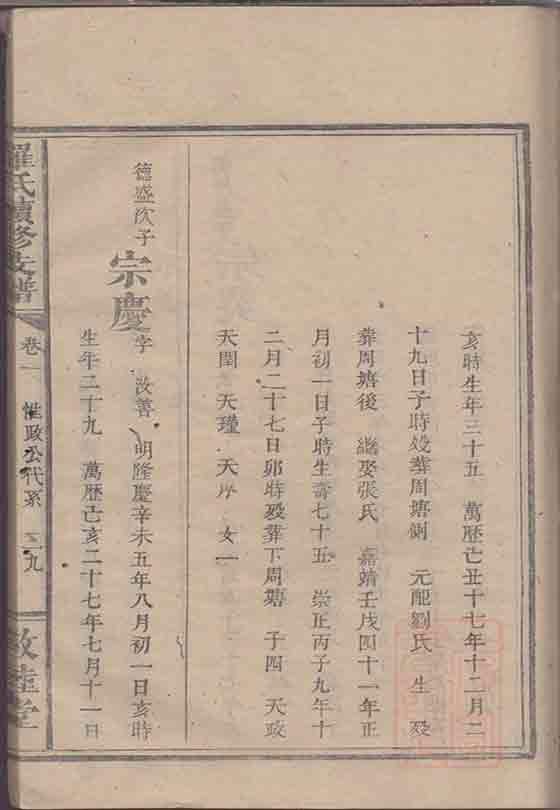 亥時生年三十五　萬歷己丑十七年十二月二
十九日子時歿葬周塘側　元配劉氏　生　歿
葬周塘後　繼娶張氏　嘉靖壬戌四十一年正
月初一日子時生壽七十五　崇正丙子九年十
二月二十七日卯時歿葬下周塘　子四　天政
天閏　天瑾　天序　女一
德盛次子
宗慶 字　汝善　明隆慶辛未五年八月初一日亥時
生年二十九　萬歷己亥二十七年七月十一日
羅氏續修支譜
卷一
惟政公代系
二九
敦睦堂